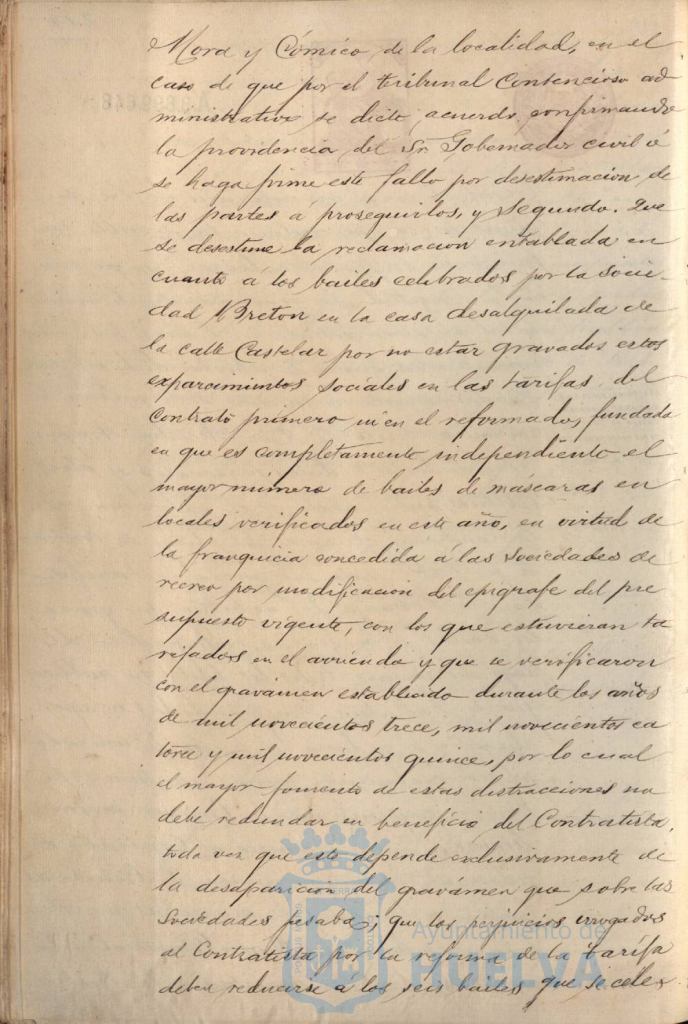 Mora y Cómico de la localidad, en el
caso de que por el tribunal Contencioso ad
ministrativo se dicte acuerdo confirmando
la providencia del Sr. Gobernador civil ó
se haga firme este fallo por desestimacion de
las partes á proseguirlos, y Segundo. Que
se desestime la reclamacion entablada en
cuanto á los bailes celebrados por la Socie-
dad Breton en la casa desalquilada de
la calle Castelar por no estar gravados estos
esparcimientos sociales en las tarifas del
Contrato primero ni en el reformado, fundada
en que es completamente independiente el
mayor número de bailes de máscaras en
locales verificados en este año, en virtud de
la franquicia concedida á las Sociedades de
recreo por modificacion del epigrafe del pre
supuesto vigente, con los que estuvieran ta
rifados en el arriendo y que se verificaron
con el gravámen establecido durante los años
de mil novecientos trece, mil novecientos ca
torce y mil novecientos quince, por lo cual
el mayor fomento de estas distracciones no
debe redundar en beneficio del Contratista,
toda vez que esto depende exclusivamente de
la desaparicion del gravámen que sobre las
Sociedades pesaba; que los perjuicios irrogados
al Contratista por la reforma de la tarifa
deben reducirse á los seis bailes que se cele-
Ayuntamiento de
HUELVA